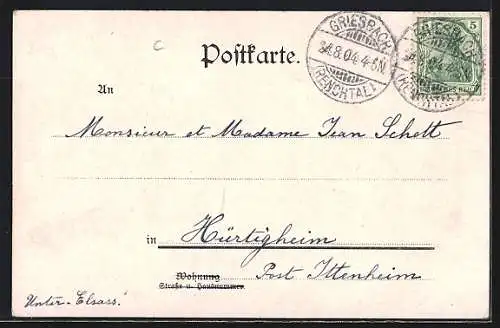 C
Postkarte.
GRIESBACH
31.8.04.4-5N.
(RENCHTAL)
5
An
Monsieur et Madame Jean Schott
in Hürtigheim
Wohnung
Straße u. Hausnummer
Post Ittenheim
Unter-Elsass.